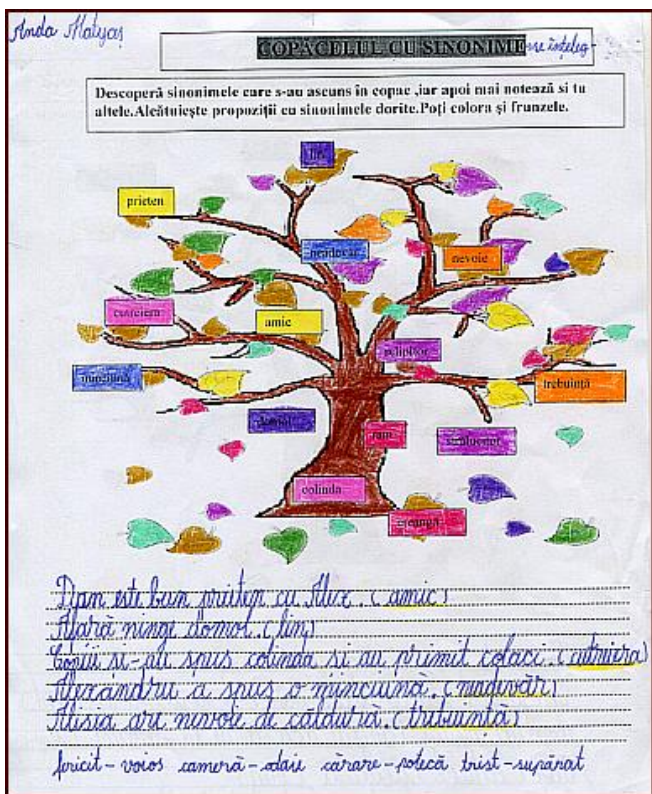 Anda Matyaș
COPĂCELUL CU SINONIME
se înțeleg-
Descoperă sinonimele care s-au ascuns în copac ,iar apoi mai notează si tu
altele.Alcătuiește propoziții cu sinonimele dorite.Poți colora și frunzele.
lin
prieten
neadevăr
nevoie
cutreiera
amic
sclipitor
minciună
trebuință
domol
ram
strălucitor
colinda
creangă
Dan este bun prieten cu Alex. (amic)
Afară ninge domol. (lin)
Copiii și-au spus colinda si au primit colaci. (cutreiera)
Alexandru a spus o minciună. (neadevăr)
Alisia are nevoie de căldură. (trebuință)
fericit - voios cameră - odaie cărare - potecă trist - supărat